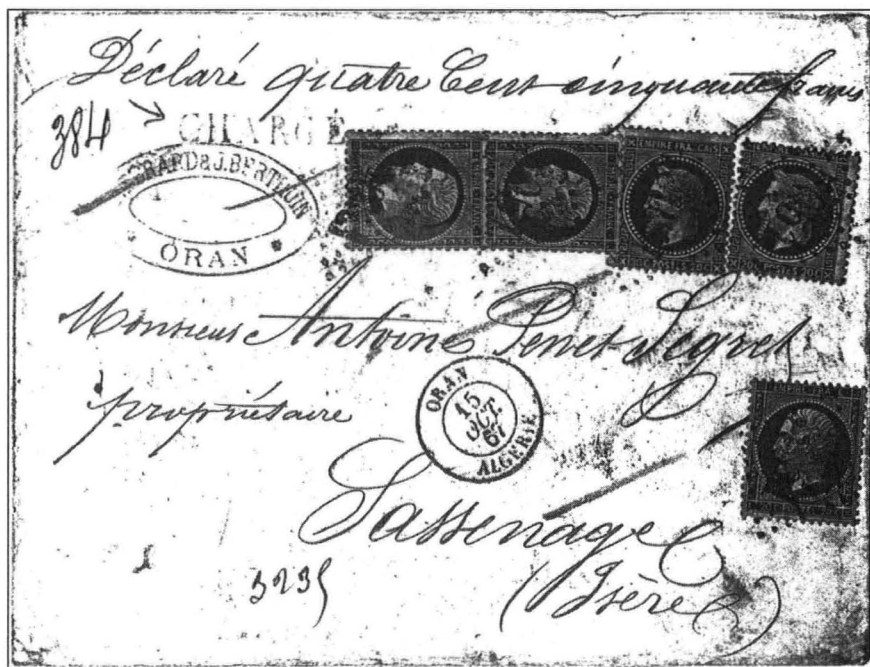 Déclaré quatre Cent cinquante francs
384
CHARGÉ
& J. BERTHOIN
ORAN
EMPIRE FRANÇAIS
Monsieur Antoine Penet Segret
propriétaire
ORAN
15
OCT.
67
ALGERIE
Sassenage
(Isère)
3235